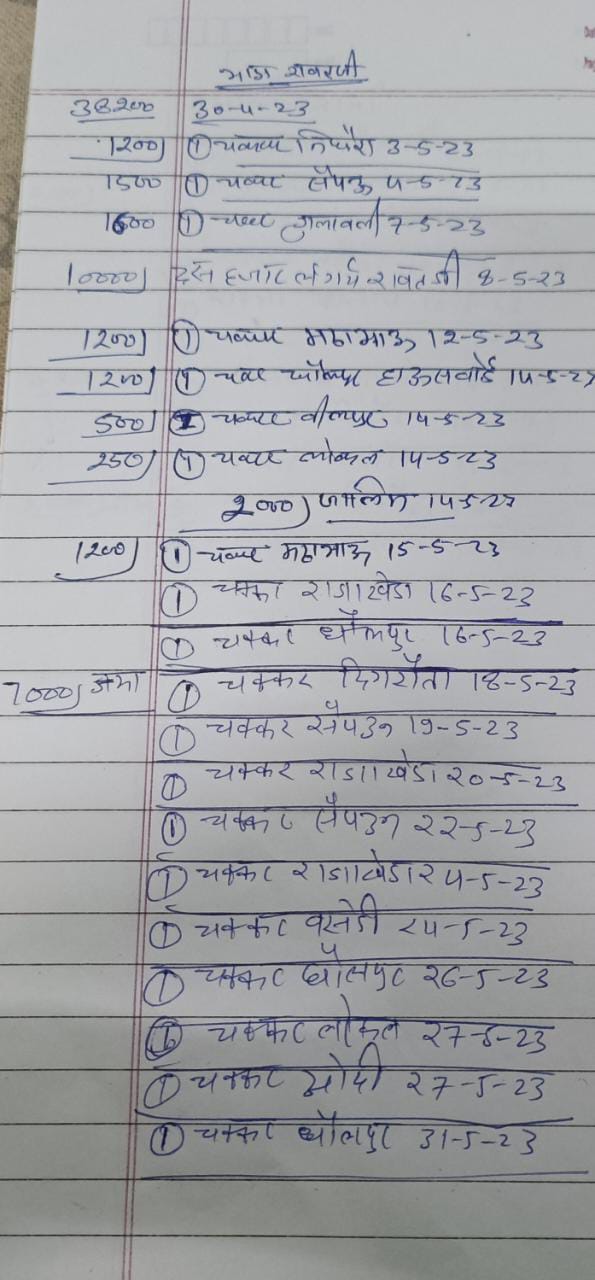 भाडा रावरजी
38200 30-4-23
1200) ① चक्कर 3-5-23
1500 ① चक्कर सैंपऊ 4-5-23
1600 ① चक्कर 7-5-23
10000) दस हजार ले गये रावतजी 8-5-23
1200) ① चक्कर 12-5-23
1200) ① चक्कर धौलपुर हाऊसबोर्ड 14-5-23
500) चक्कर 14-5-23
250) ① चक्कर लोकल 14-5-23
2000) 14-5-23
1200) ① चक्कर 15-5-23
① चक्कर राजाखेडा 16-5-23
① चक्कर धौलपुर 16-5-23
7000) जमा ① चक्कर दिगरौता 18-5-23
① चक्कर सैंपऊ 19-5-23
① चक्कर राजाखेडा 20-5-23
① चक्कर सैपऊ 22-5-23
① चक्कर राजाखेडा 24-5-23
① चक्कर बसेडी 24-5-23
① चक्कर धौलपुर 26-5-23
① चक्कर लोकल 27-5-23
① चक्कर 27-5-23
① चक्कर धौलपुर 31-5-23